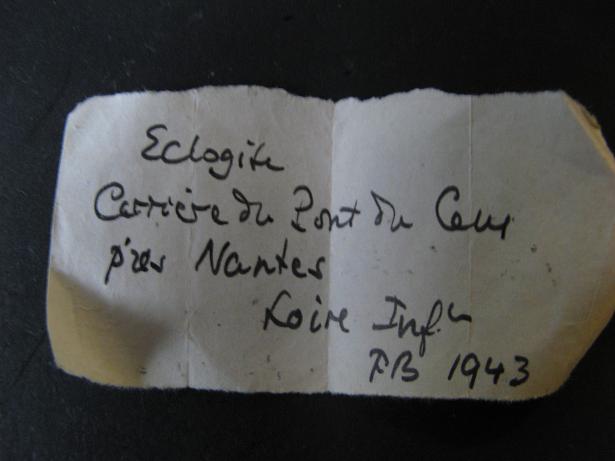 Eclogite
Carrière du Pont du Cens
près Nantes
Loire Infre
FB 1943